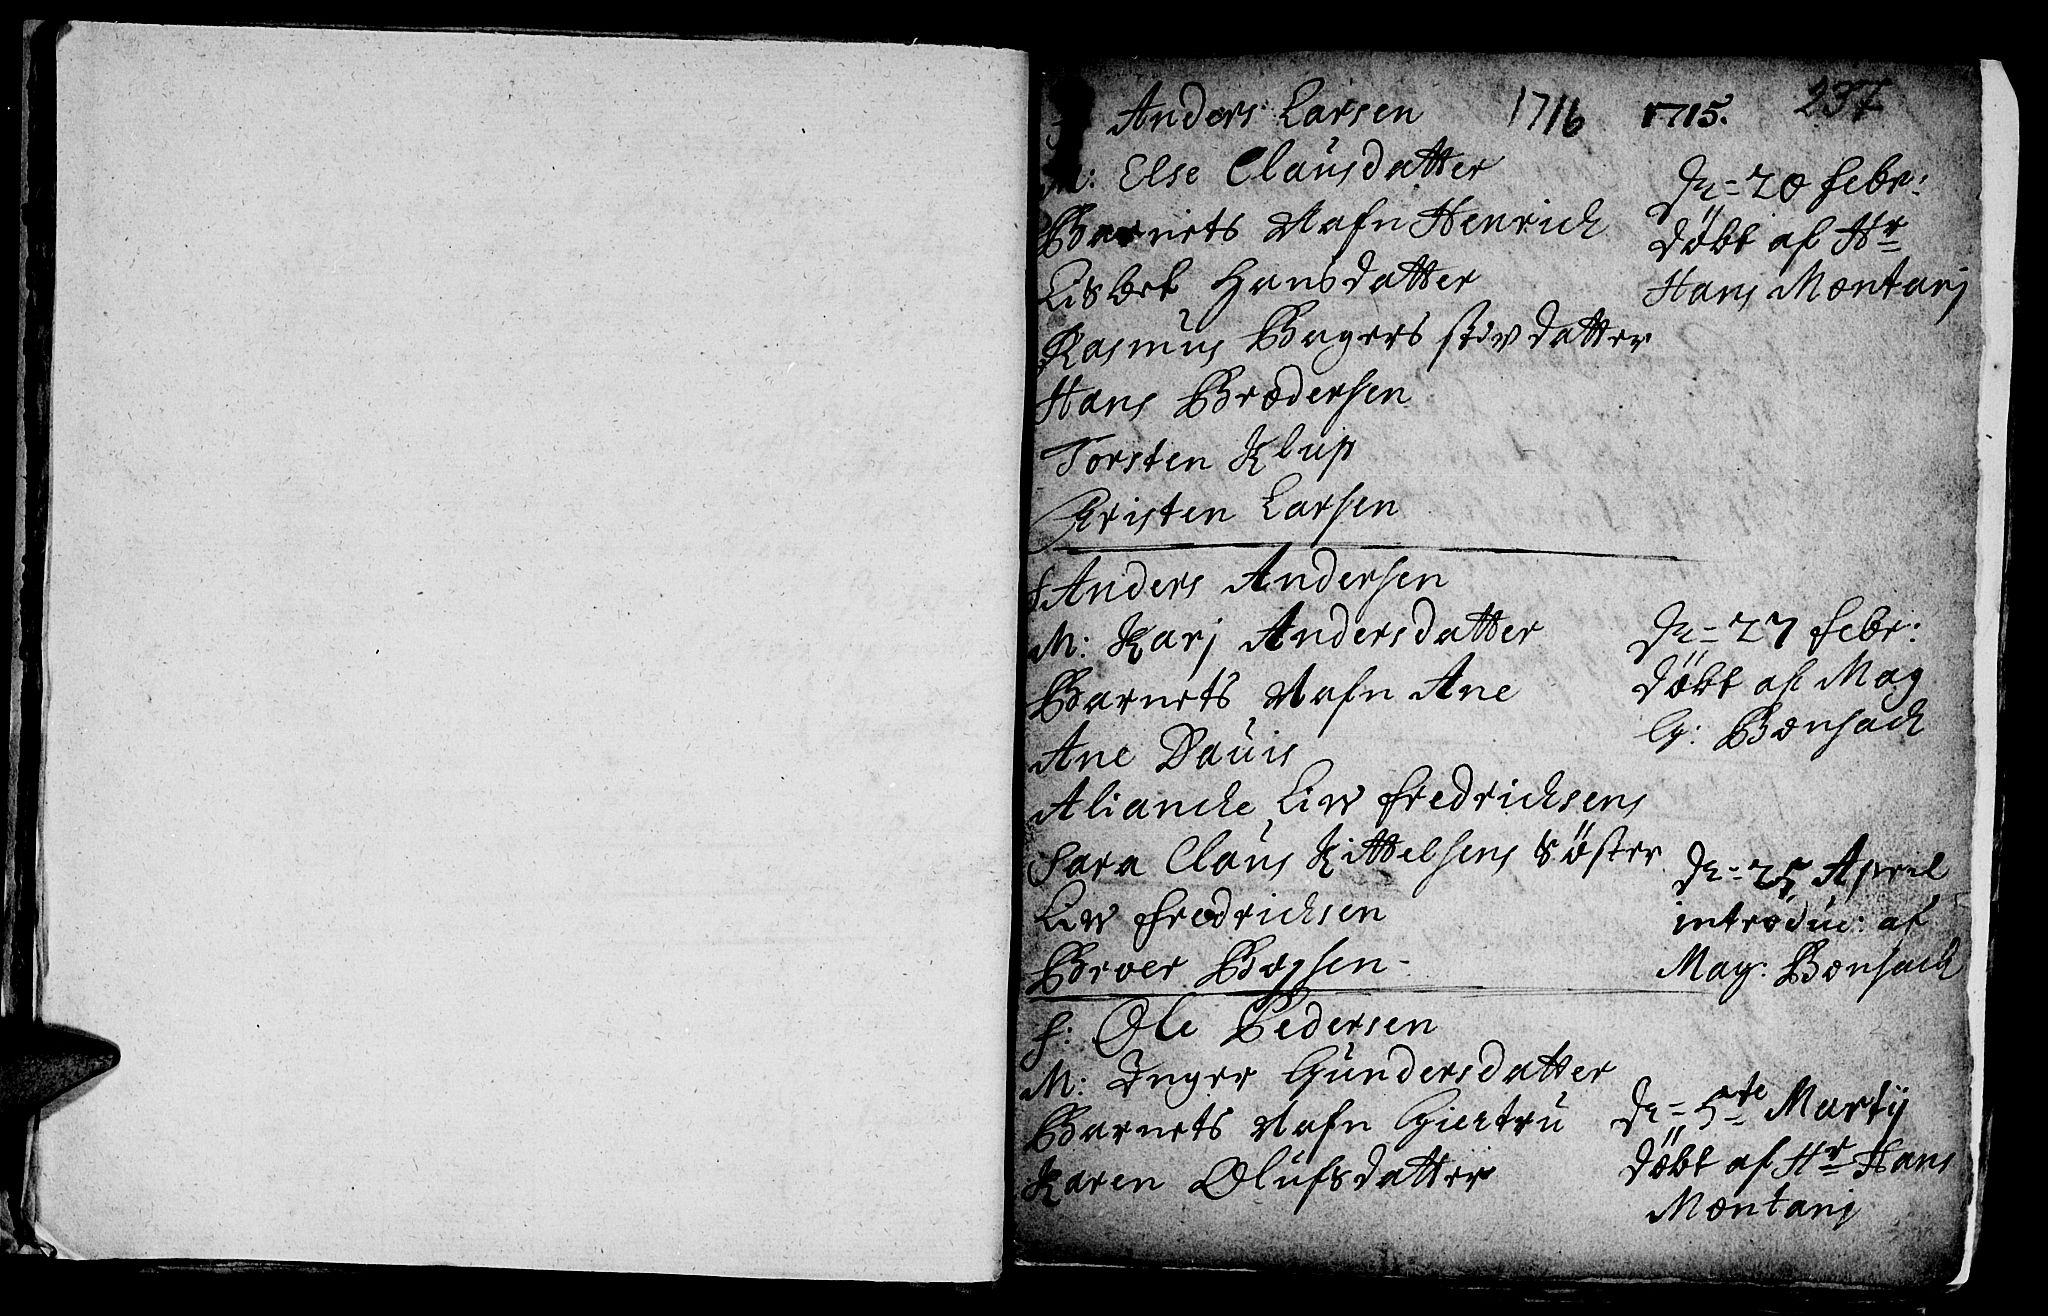 Anders Larsen 1716 1715. 237
M: Else Clausdatter
Barnets Nafn Henrich
Lisbet Hansdatter
Rasmus Bagers stivdatter
Hans Brodersen
Torsten Klup
Christen Larsen
Dn = 20 febr:
döbt af Hr
Hans Montanj
f Anders Andersen
M: Karj Andersdatter
Barnets Nafn Ane
Ane Dauis
Aliancke Liw fredricksens
Sara Claus Kittelsens Söster
Liw fredricksen
Broer Boysen
Dn = 27 febr:
döbt af Mag
C: Bonsach
Dn = 25 April
introduc: af
Mag: Bonsach
f: Ole Pedersen
M: Inger Gundersdatter
Barnets Nafn Giertru
Karen Olufsdatter
Dn = 5te Martij
döbt af Hr Hans
Montanj